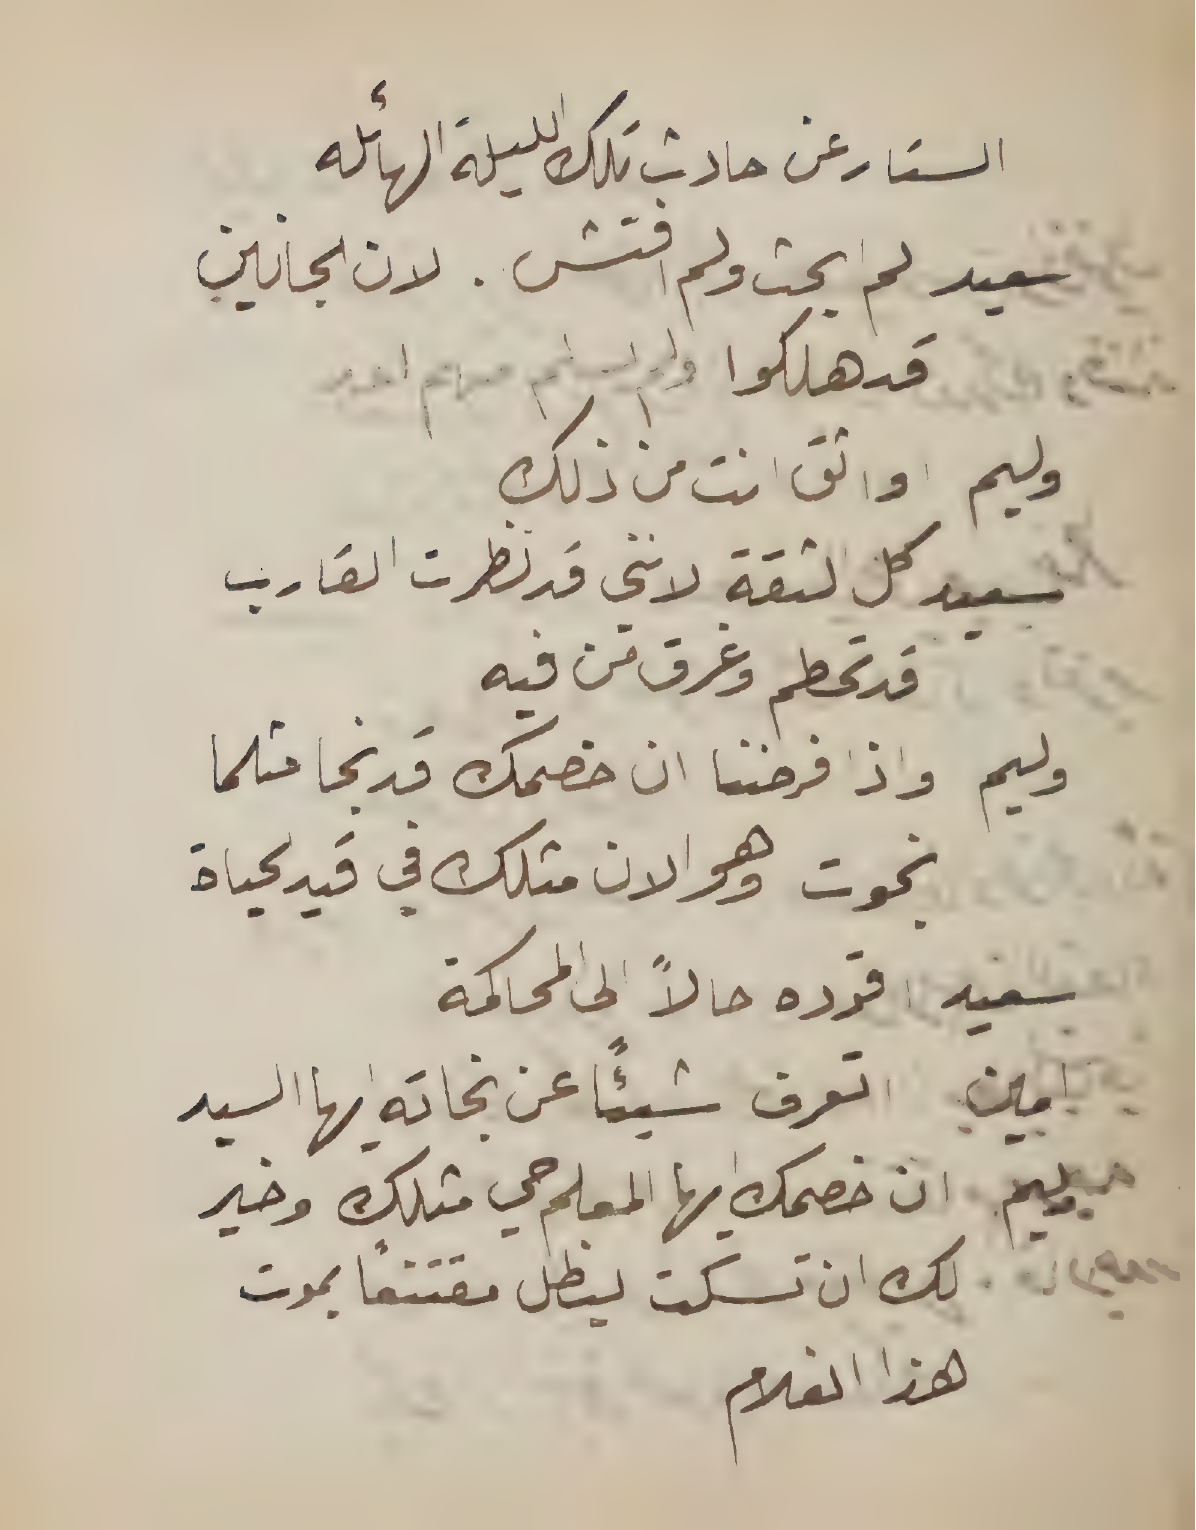 الستار عن حادث تلك الليلة الهائله
سعيد لم ابحث ولم افتش . لان الجانين
قد هلكوا ولم يسلم منهم احد
وليم اواثق انت من ذلك
سعيد كل الثقة لانني قد نظرت القارب
قد تحطم وغرق من فيه
وليم واذا فرضنا ان خصمك قد نجا مثلما
نجوت وهو الان مثلك في قيد الحياة
سعيد اقوده حالاً الى المحاكمة
امين اتعرف شيئًا عن نجاته ايها السيد
وليم ان خصمك ايها المعلم حي مثلك وخير
لك ان تسكت ليظل مقتنعًا بموت
هذا الغلام